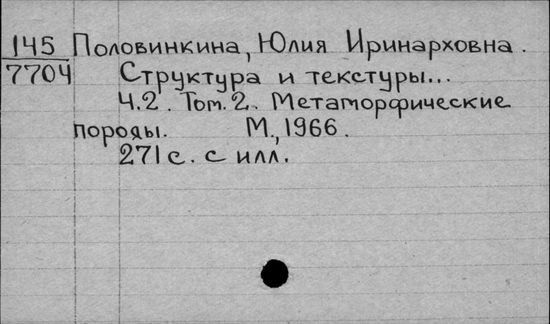 145 Половинкина, Юлия Иринарховна.
7704 Структура и текстуры...
Ч.2. Том.2. Метаморфические
породы. М., 1966.
271 с. с илл.